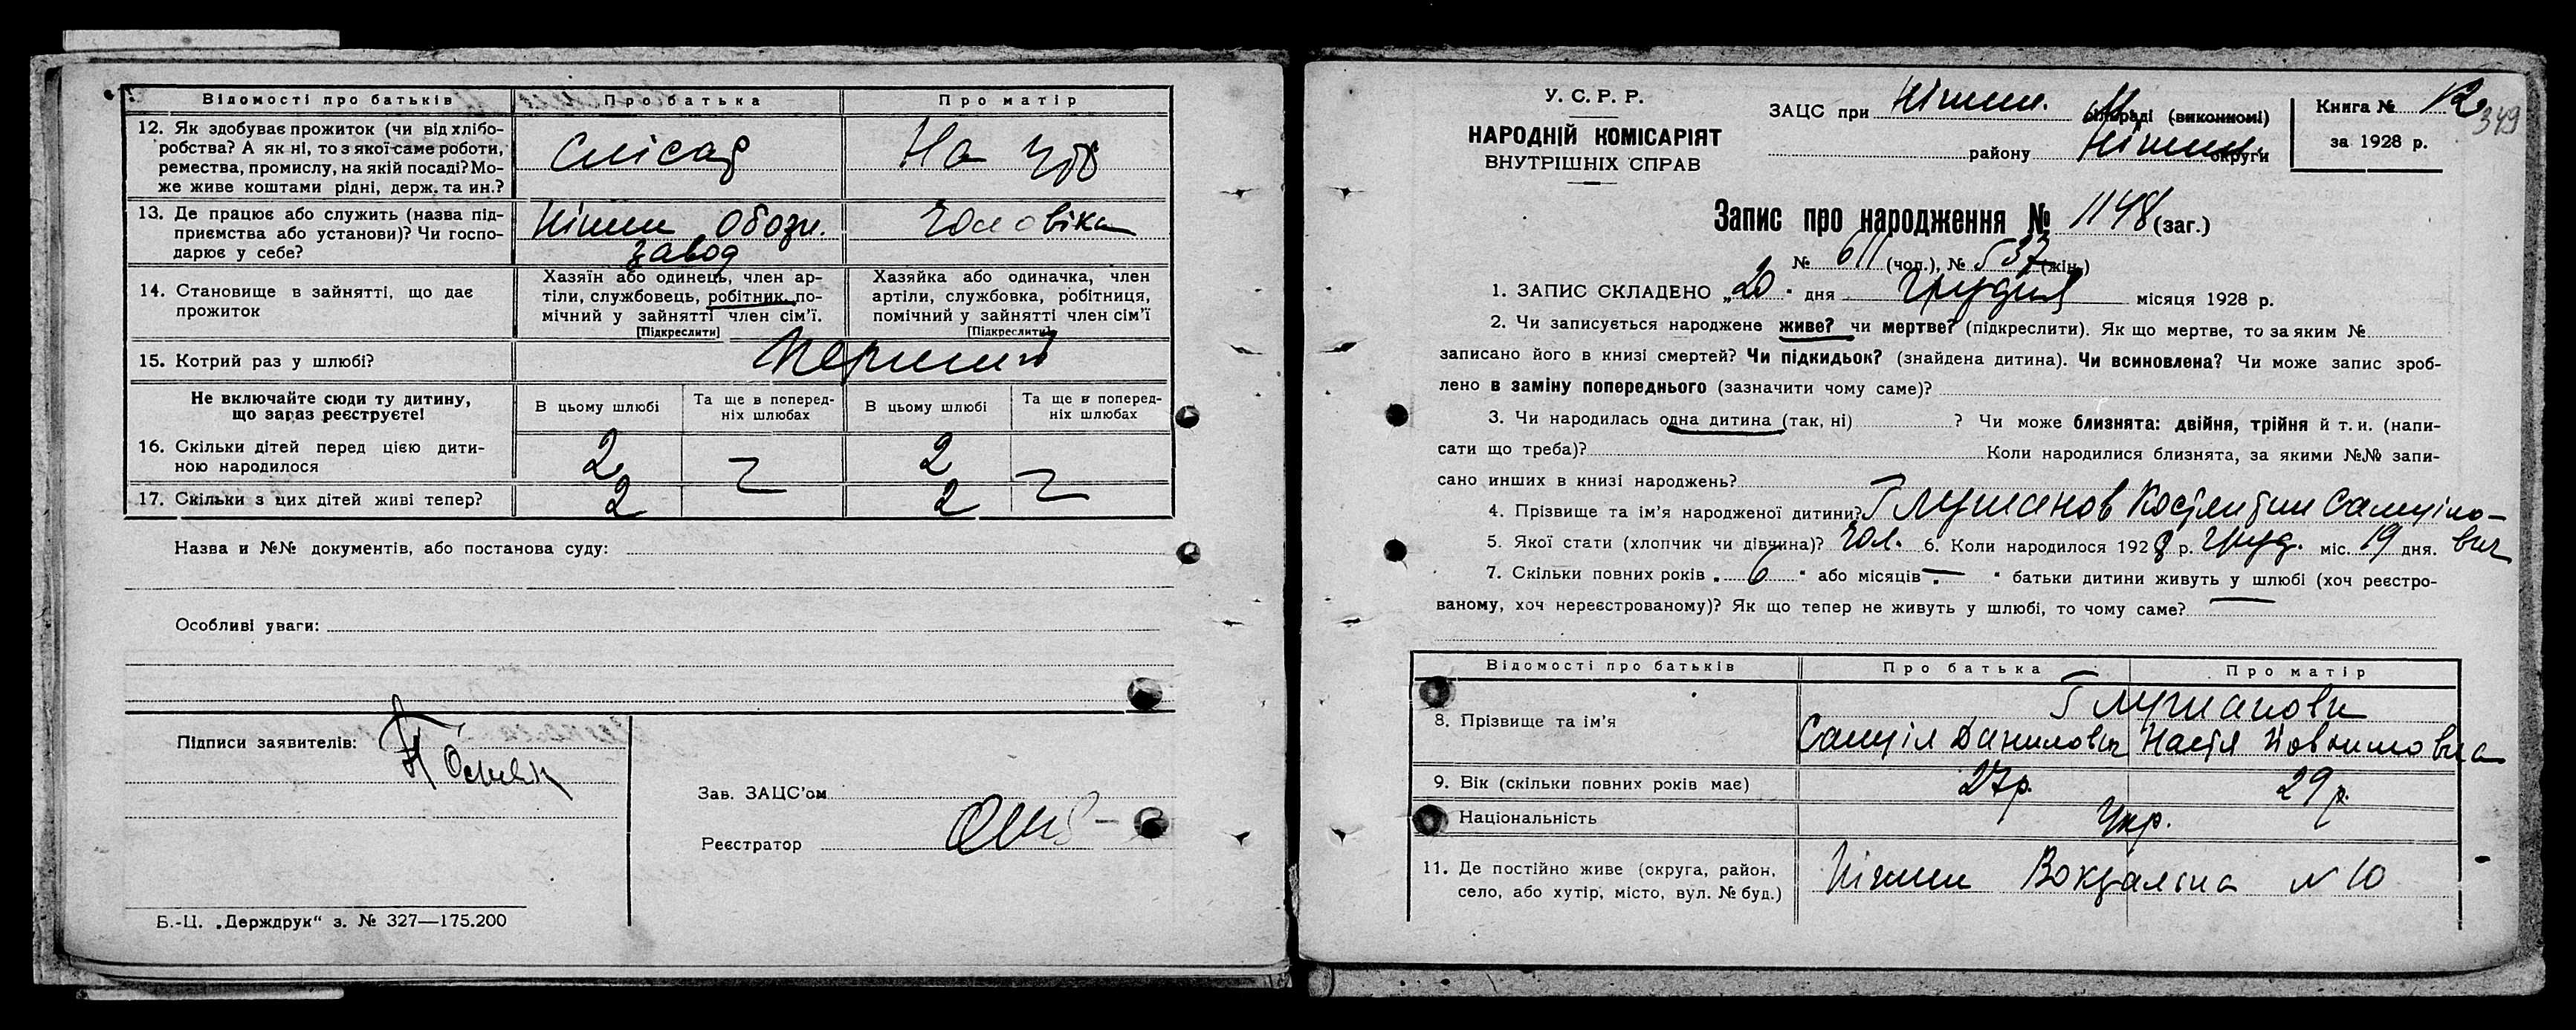 Відомості про батьків
Про батька
Про матір
12. Як здобуває прожиток (чи від хлібо-
робства? А як ні, то з якої саме роботи,
ремества, промислу, на якій посаді? Мо-
же живе коштами рідні, держ. та ин.?
Слісар
На утр
13. Де працює або служить (назва під-
приємства або установи)? Чи госпо-
дарює у себе?
Ніжин Обозн.
завод
Чоловіка
14. Становище в зайнятті, що дає
прожиток
Хазяїн або одинець, член ар-
тіли, службовець, робітник, по-
мічний у зайнятті член сім'ї.
[Підкреслити]
Хазяйка або одиначка, член
артіли, службовка, робітниця,
помічний у зайнятті член сім'ї
[Підкреслити]
15. Котрий раз у шлюбі?
Перший
Не включайте сюди ту дитину,
що зараз реєструєте!
В цьому шлюбі
Та ще в поперед-
ніх шлюбах
В цьому шлюбі
Та ще в поперед-
ніх шлюбах
16. Скільки дітей перед цією дити-
ною народилося
2
2
17. Скільки з цих дітей живі тепер?
2
2
Назва и №№ документів, або постанова суду:
Особливі уваги:
Підписи заявителів:
Зав. ЗАЦС'ом
Реєстратор
Б.-Ц. „Держдрук“ з. № 327—175.200
У. С. Р. Р.
НАРОДНІЙ КОМІСАРІЯТ
ВНУТРІШНІХ СПРАВ
ЗАЦС при Ніжин. М. сільраді (виконкомі)
району Ніжин. округи
Книга № 12
за 1928 р.
349
Запис про народження № 1148 (заг.)
№ 611 (чол.), № 537 (жін.)
1. ЗАПИС СКЛАДЕНО „20“ дня Грудня місяця 1928 р.
2. Чи записується народжене живе? чи мертве? (підкреслити). Як що мертве, то за яким №
записано його в книзі смертей? Чи підкидьок? (знайдена дитина). Чи всиновлена? Чи може запис зроб-
лено в заміну попереднього (зазначити чому саме)?
3. Чи народилась одна дитина (так, ні) ? Чи може близнята: двійня, трійня й т. и. (напи-
сати що треба)? Коли народилися близнята, за якими №№ запи-
сано инших в книзі народжень?
4. Прізвище та ім'я народженої дитини? Глушанов Костянтин Самуіло-
5. Якої стати (хлопчик чи дівчина)? Чол. 6. Коли народилося 1928 р. Груд. міс. 19 дня. вич
7. Скільки повних років „ 6 “ або місяців „ — “ батьки дитини живуть у шлюбі (хоч реєстро-
ваному, хоч нереєстрованому)? Як що тепер не живуть у шлюбі, то чому саме? —
Відомості про батьків
Про батька
Про матір
8. Прізвище та ім'я
Глушанови
Самуіл Данилович
Настя
9. Вік (скільки повних років має)
27р.
29р.
Національність
Укр.
11. Де постійно живе (округа, район,
село, або хутір, місто, вул. № буд.)
Ніжин Вокзальна N 10